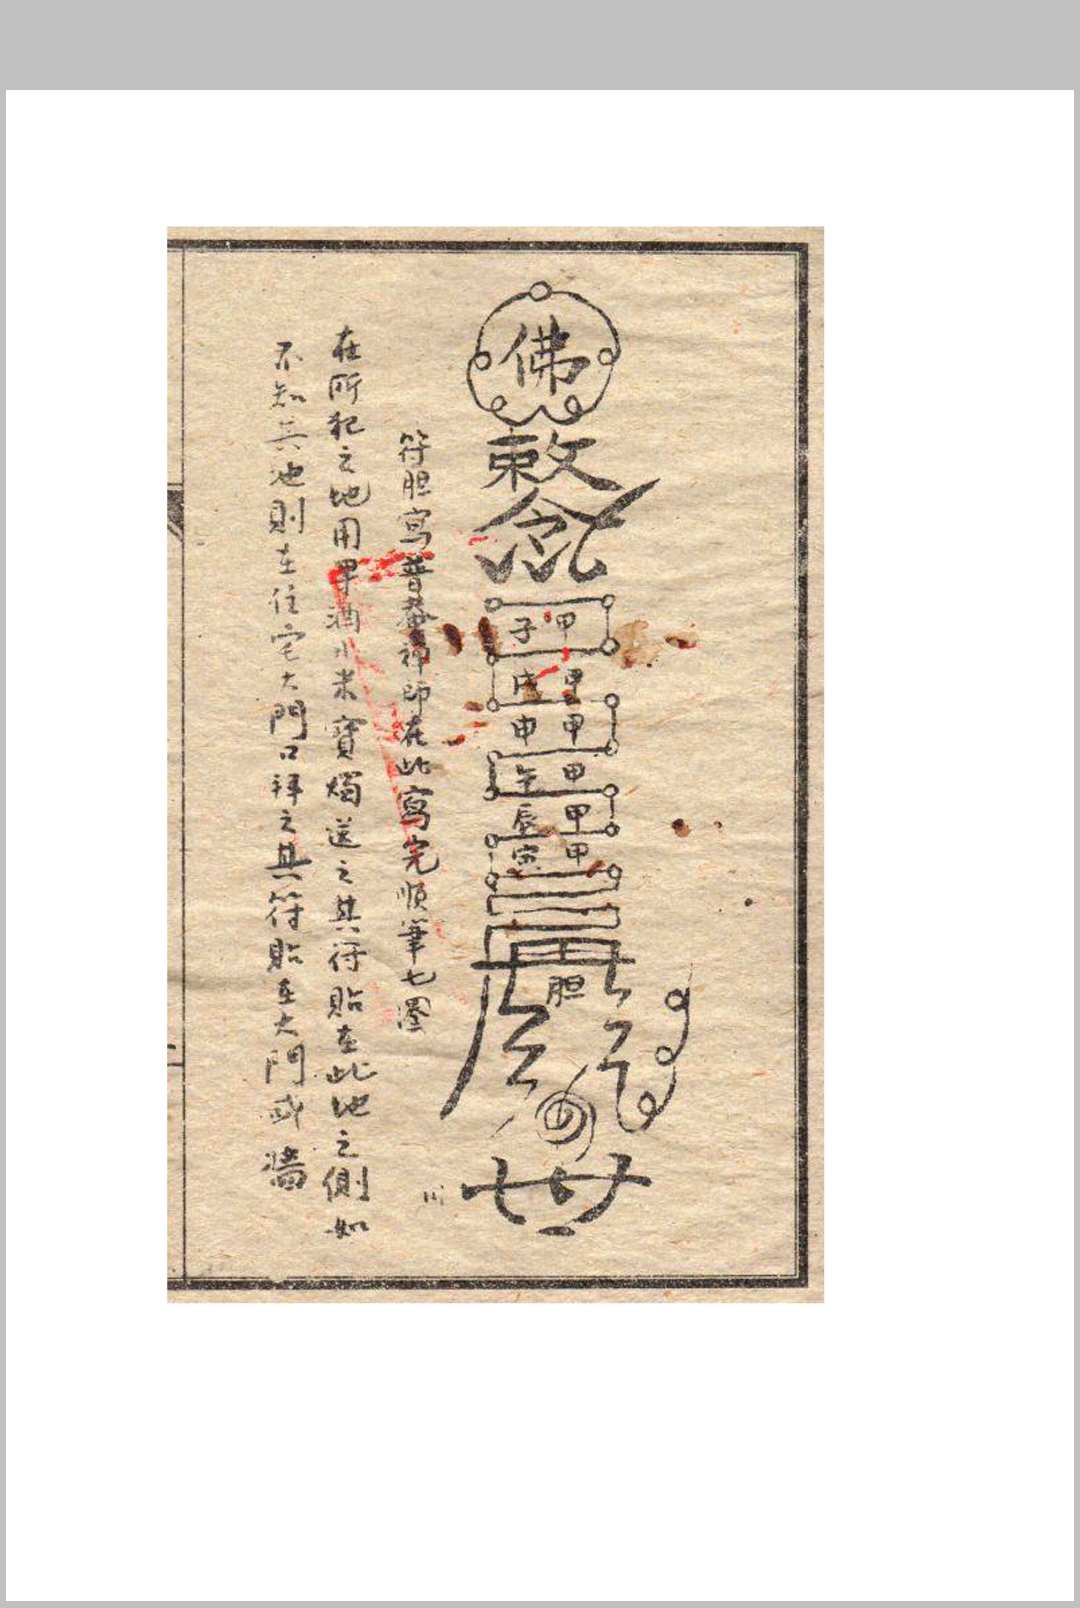 佛
敕令
甲子
甲戌
甲申
甲午
甲辰
甲寅
胆
符胆寫普菴禅師在此寫完順筆七圈
在所犯之地用畢酒小米寶燭送之其符貼在此地之側如
不知其地則在住宅大門口拜之其符貼在大門或牆